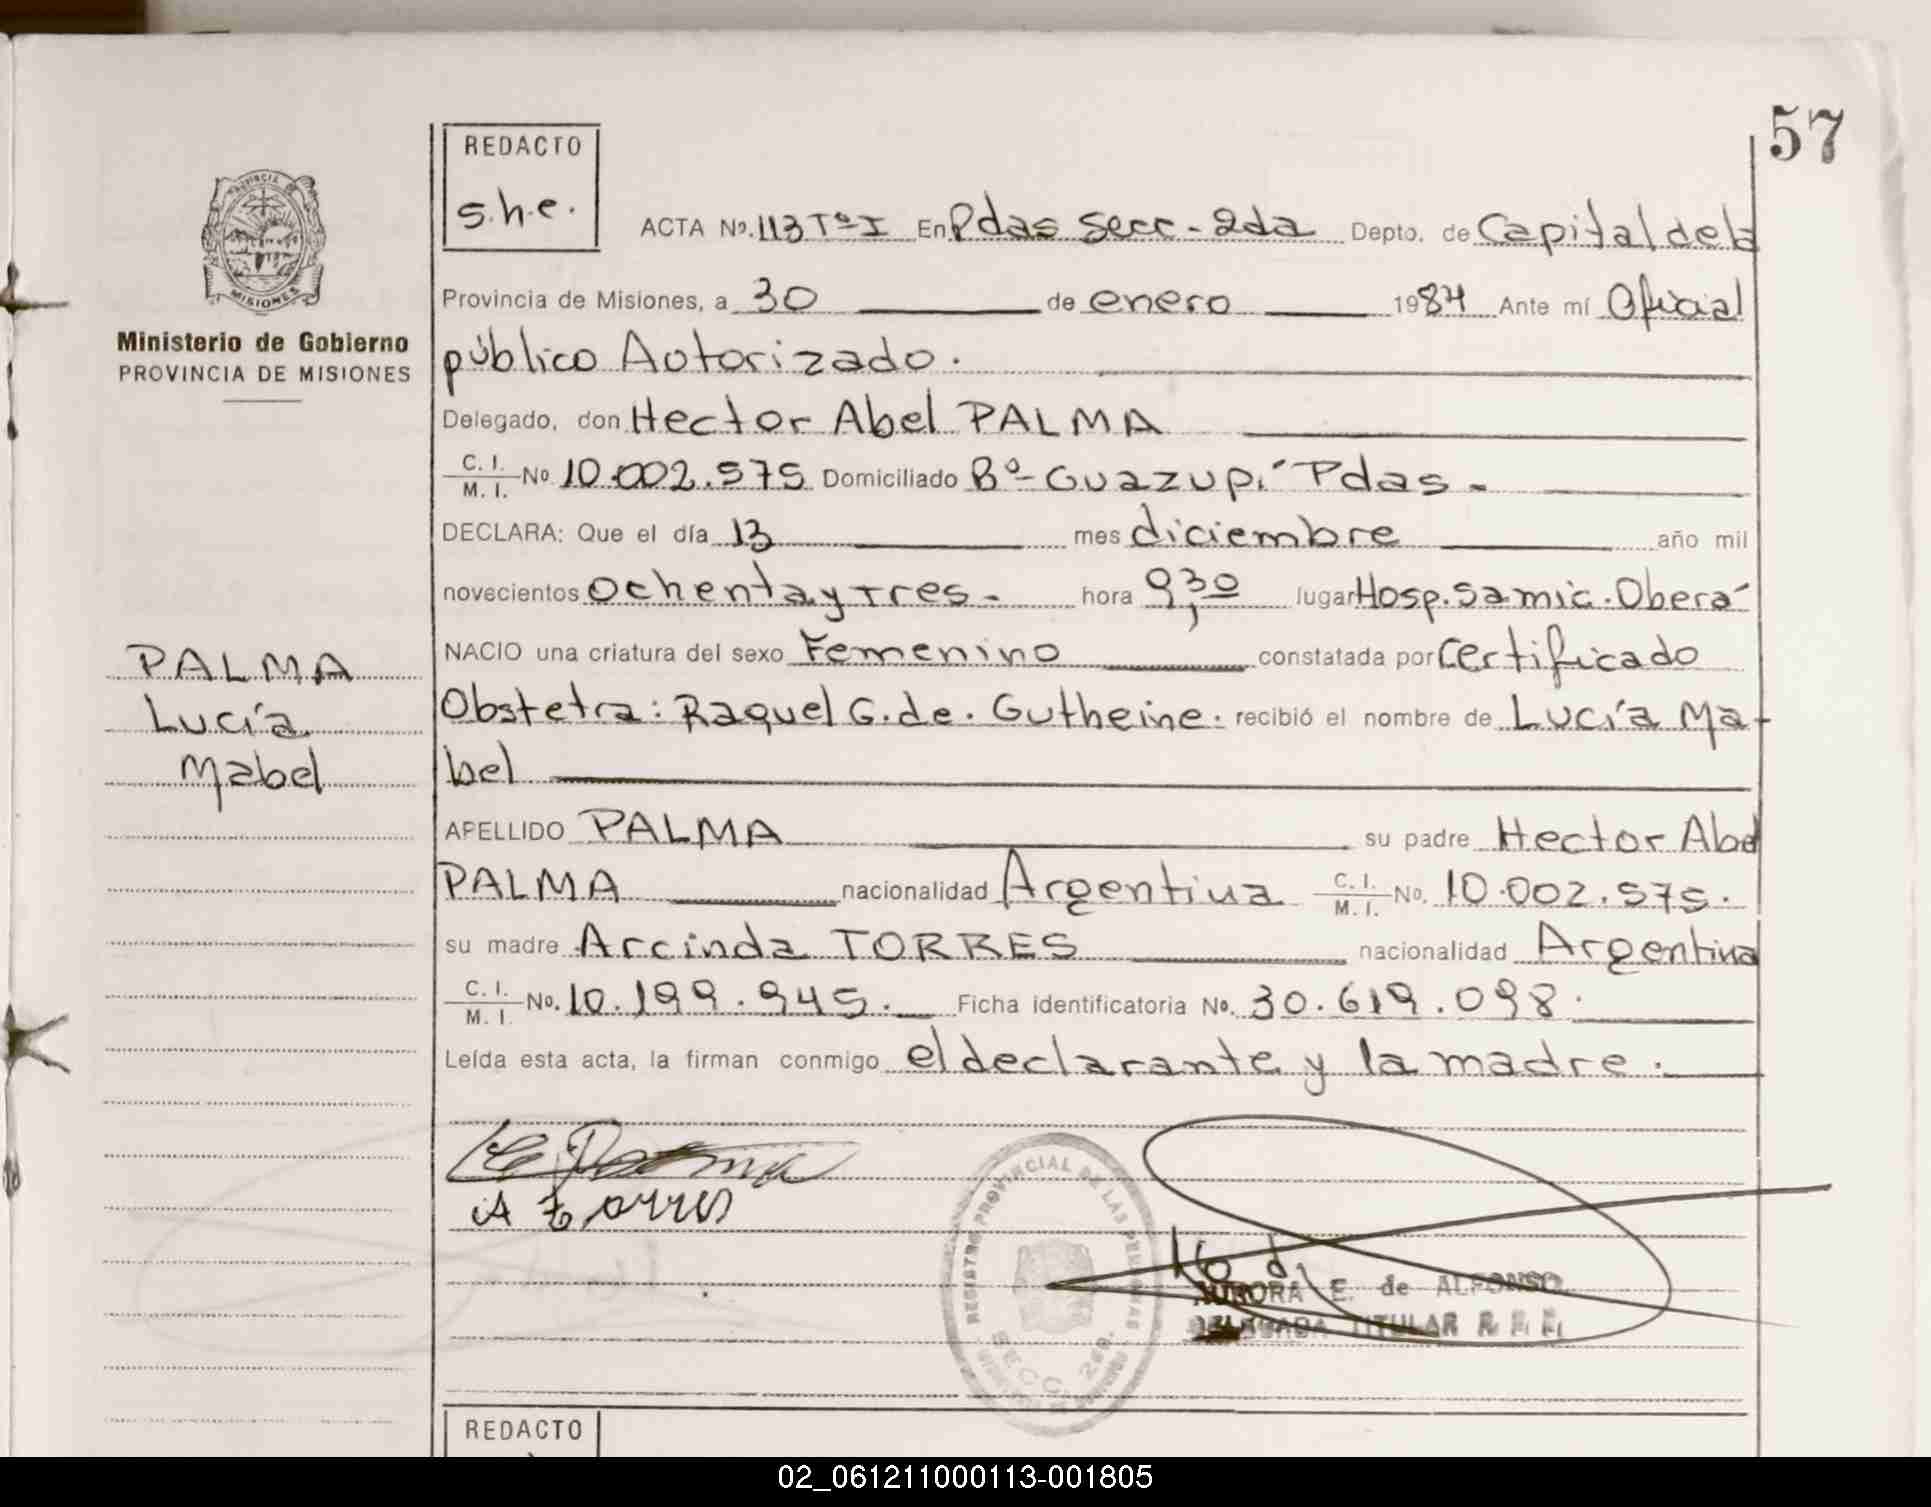 57
REDACTO
s.h.e.
PROVINCIA DE
MISIONES
Ministerio de Gobierno
PROVINCIA DE MISIONES
ACTA No. 113 Tº I En Pdas secc - 2da Depto. de Capital de la
Provincia de Misiones, a 30 de enero 1984 Ante mí Oficial
público Autorizado.
Delegado, don Hector Abel PALMA
C. I. / M. I. No 10.002.575 Domiciliado Bº Guazupí Pdas.
DECLARA: Que el día 13 mes diciembre año mil
novecientos ochenta y tres. hora 9,30 lugar Hosp. Samic. Oberá
NACIO una criatura del sexo Femenino constatada por certificado
Obstetra: Raquel G. de. Gutheine. recibió el nombre de Lucía Ma-
bel
APELLIDO PALMA su padre Hector Abel
PALMA nacionalidad Argentina C. I. / M. I. No. 10.002.575.
su madre Arcinda TORRES nacionalidad Argentina
C. I. / M. I. No. 10.199.945. Ficha identificatoria No. 30.619.098.
Leída esta acta, la firman conmigo el declarante y la madre.
PALMA
Lucía
Mabel
A Torres
REGISTRO PROVINCIAL DE LAS PERSONAS
SECC. 2da.
AURORA E. de ALFONSO
DELEGADA TITULAR R. P. P.
REDACTO
02_061211000113-001805